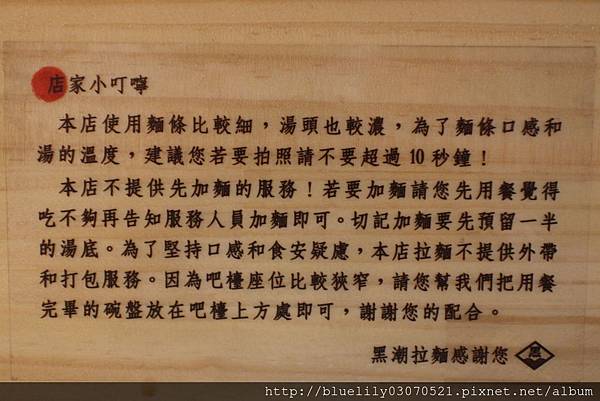 店家小叮嚀
本店使用麵條比較細，湯頭也較濃，為了麵條口感和
湯的溫度，建議您若要拍照請不要超過10秒鐘！
本店不提供先加麵的服務！若要加麵請您先用餐覺得
吃不夠再告知服務人員加麵即可。切記加麵要先預留一半
的湯底。為了堅持口感和食安疑慮，本店拉麵不提供外帶
和打包服務。因為吧檯座位比較狹窄，請您幫我們把用餐
完畢的碗盤放在吧檯上方處即可，謝謝您的配合。
黑潮拉麵感謝您
http://bluelily03070521.pixnet.net/album